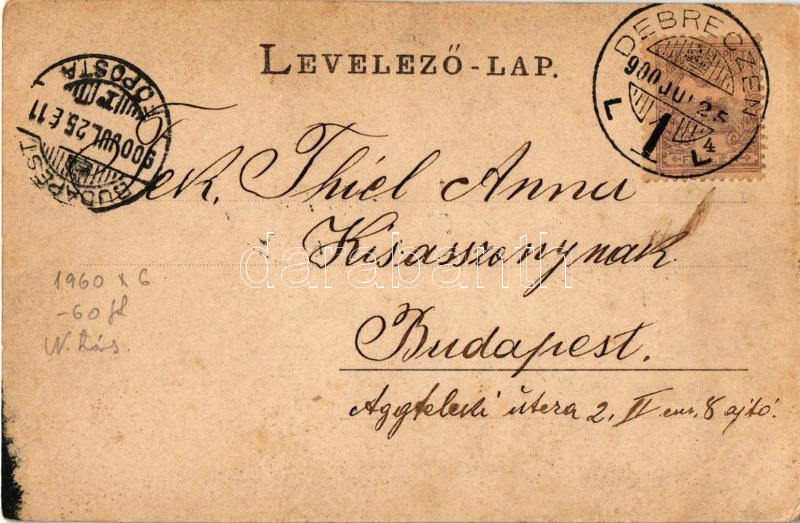 LEVELEZŐ-LAP.
DEBRECZEN
900 JUL 25
L 1 L
4
BUDAPEST
900 JUL 25 É 11
FŐPOSTA
Tek. Thiel Anna
Kisasszonynak
Budapest.
Aggteleki útcza 2, II em. 8 ajtó.
1960 X 6
-60 fl
darabanth